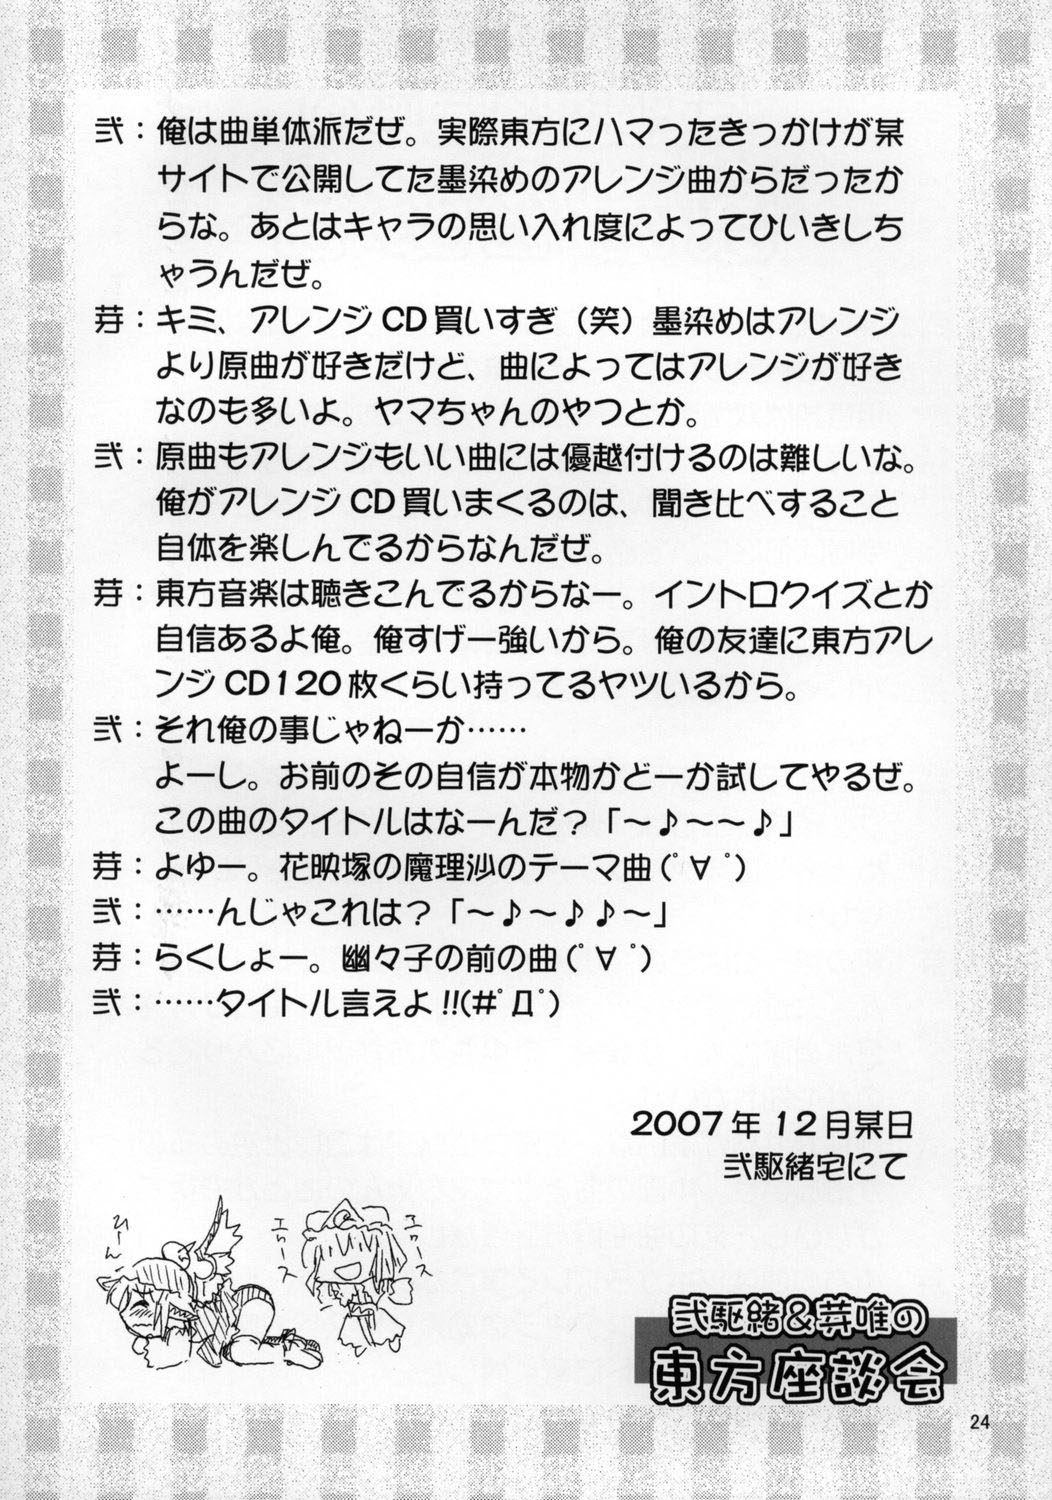 弐：俺は曲単体派だぜ。実際東方にハマったきっかけが某
サイトで公開してた墨染めのアレンジ曲からだったか
らな。あとはキャラの思い入れ度によってひいきしち
ゃうんだぜ。
芽：キミ、アレンジCD買いすぎ（笑）墨染めはアレンジ
より原曲が好きだけど、曲によってはアレンジが好き
なのも多いよ。ヤマちゃんのやつとか。
弐：原曲もアレンジもいい曲には優越付けるのは難しいな。
俺がアレンジCD買いまくるのは、聞き比べすること
自体を楽しんでるからなんだぜ。
芽：東方音楽は聴きこんでるからなー。イントロクイズとか
自信あるよ俺。俺すげー強いから。俺の友達に東方アレ
ンジCD120枚くらい持ってるヤツいるから。
弐：それ俺の事じゃねーか……
よーし。お前のその自信が本物かどーか試してやるぜ。
この曲のタイトルはなーんだ？「～♪～～♪」
芽：よゆー。花映塚の魔理沙のテーマ曲(ﾟ∀ﾟ)
弐：……んじゃこれは？「～♪～♪♪～」
芽：らくしょー。幽々子の前の曲(ﾟ∀ﾟ)
弐：……タイトル言えよ!!(#ﾟДﾟ)
2007年12月某日
弐駆緒宅にて
ひーん
エロース
エロース
弐駆緒＆芽唯の
東方座談会
24